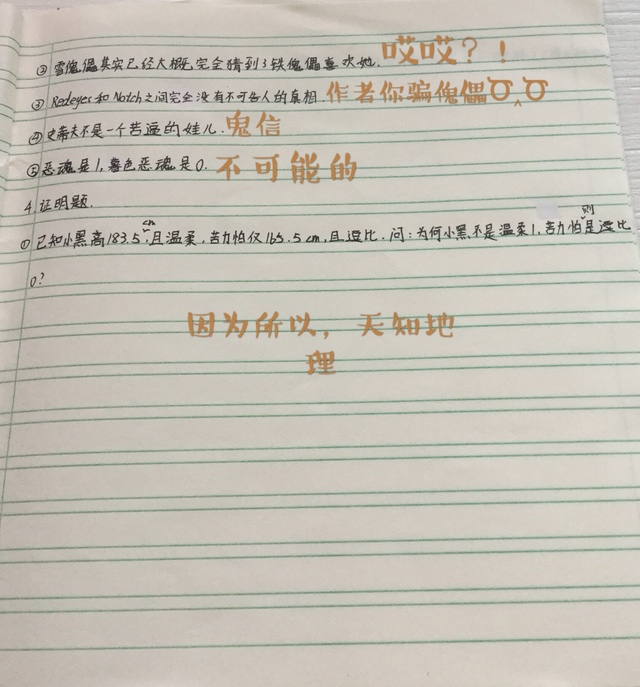 ②雪傀儡其实已经大概完全猜到了铁傀儡喜欢她. 哎哎?!
③Redeyes和Notch之间完全没有不可告人的真相. 作者你骗傀儡
④史蒂夫不是一个苦逼的娃儿. 鬼信
⑤恶魂是1,暮色恶魂是0. 不可能的
4.证明题.
①已知小黑高183.5cm,且温柔,苦力怕仅165.5cm,且逗比.问:为何小黑不是温柔1,苦力怕则是逗比
0?
因为所以,天知地
理